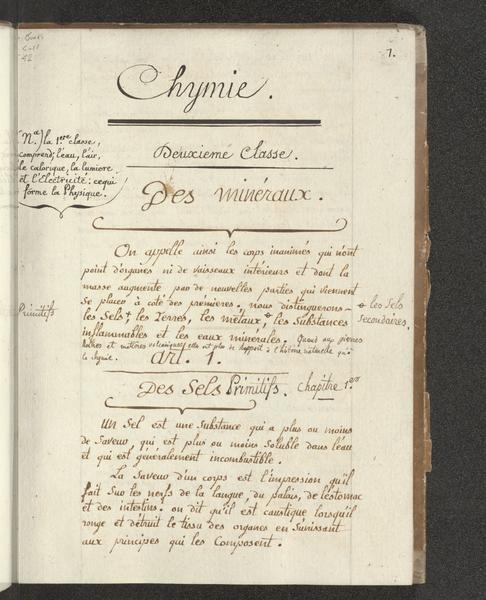 7.
Chymie.
Deuxieme Classe.
Na) la 1ere classe,
comprend; l'eau, l'air,
le calorique, la lumiere
et l'Electricité: cequi
forme la Physique.
Des minéraux.
On appelle ainsi les corps inanimés qui n'ont
point d'organes ni de vaisseaux intérieurs et dont la
masse augmente par de nouvelles parties qui viennent
Se placer à coté des prémieres. nous distinguerons
Primitifs
les Sels, les Terres, les métaux, les Substances
les Sels
Secondaires.
inflammables et les eaux minérales. Quand aux pierres
Roches et matieres volcaniques elles ont plus de Rapport à l'histoire naturelle qu'a
la chymie.
art. 1.
Des Sels Primitifs. Chapitre 1er
Un Sel est une Substance qui a plus ou moins
de Saveur, qui est plus ou moins Soluble dans l'eau
et qui est généralement incombustible.
La Saveur d'un corps est l'impression qu'il
fait Sur les nerfs de la langue, du palais, de l'estomac
et des intestins. on dit qu'il est caustique lorsqu'il
ronge et détruit le tissu des organes en S'unissant
aux principes qui les Composent.